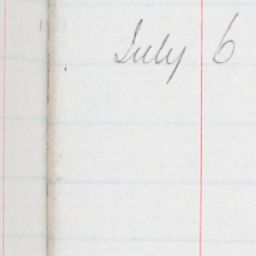 July 6